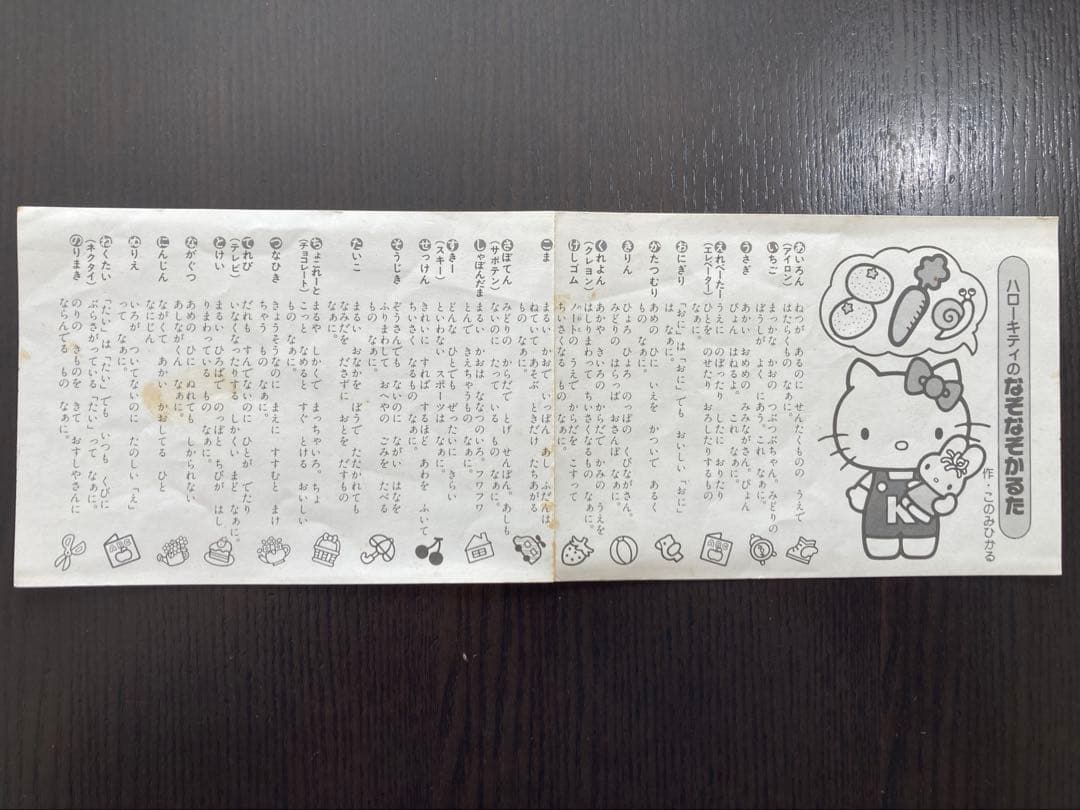 ハローキティのなぞなぞかるた
作・このみひかる
あいろん
(アイロン)
ねつが あるのに せんたくものの うえで
はたらくもの なぁに。
いちご
まっかな かおの つぶつぶちゃん。みどりの
ぼうしが よく にあう。これ なぁに。
うさぎ
あかい おめめの みみながさん。ぴょん
ぴょん はねるよ。これ なぁに。
えれべーたー
(エレベーター)
うえに のぼったり したに おりたり
ひとを のせたり おろしたりするもの
おにぎり
「おに」は「おに」でも おいしい 「おに」
は なぁに。
かたつむり
あめの ひに いえを かついで あるく
もの なぁに。
きりん
ひょろ ひょろ のっぽの くびながさん。
みどりの はらっぱ おさんぽ なぁに。
くれよん
(クレヨン)
あかや きいろの からだで かみの うえを
はしりまわって ちいさくなるもの なぁに。
けしゴム
ノートの うえで からだを こすって
ちいさくなる もの なぁに。
こま
まるい かおで いっぽん あし。ふだんは
ねていて あそぶ ときだけ たちあがる
もの なぁに。
さぼてん
(サボテン)
みどりの からだで とげ せんぼん。あしも
ないのに たって いるもの なぁに。
しゃぼんだま
まるい かおは ななつの いろ。フワフワ
とんで きえちゃうもの なぁに。
すきー
(スキー)
どんな ひとでも ぜったいに きらい
と いわない スポーツは なぁに。
せっけん
きれいに すれば するほど あわを ふいて
ちいさく なるもの なぁに。
そうじき
ぞうさんでも ないのに ながい はなを
ふりまわして おへやの ごみを たべる
もの なぁに。
たいこ
まるい おなかを ぼうで たたかれても
なみだを ださずに おとを だすもの
なぁに。
ちょこれーと
(チョコレート)
まるや しかくで まっちゃいろ。ちょ
こっと なめると すぐ とける おいしい
もの なぁに。
つなひき
きょうそうなのに まえに すすむと まけ
ちゃう もの なぁに。
てれび
(テレビ)
だれも すんでないのに ひとが でたり
いなくなったりする しかくい まど なぁに。
とけい
まるい ひろばで のっぽと ちびが はし
りまわっている もの なぁに。
ながぐつ
あめの ひに ぬれても しかられない
あしながくん なぁに。
にんじん
ながくて あかい かおしてる ひと
なにじん
ぬりえ
いろが ついてないのに たのしい「え」
って なぁに。
ねくたい
(ネクタイ)
「たい」は「たい」でも いつも くびに
ぶらさがっている「たい」って なぁに。
のりまき
のりの きものを きて おすしやさんに
ならんでる もの なぁに。
K